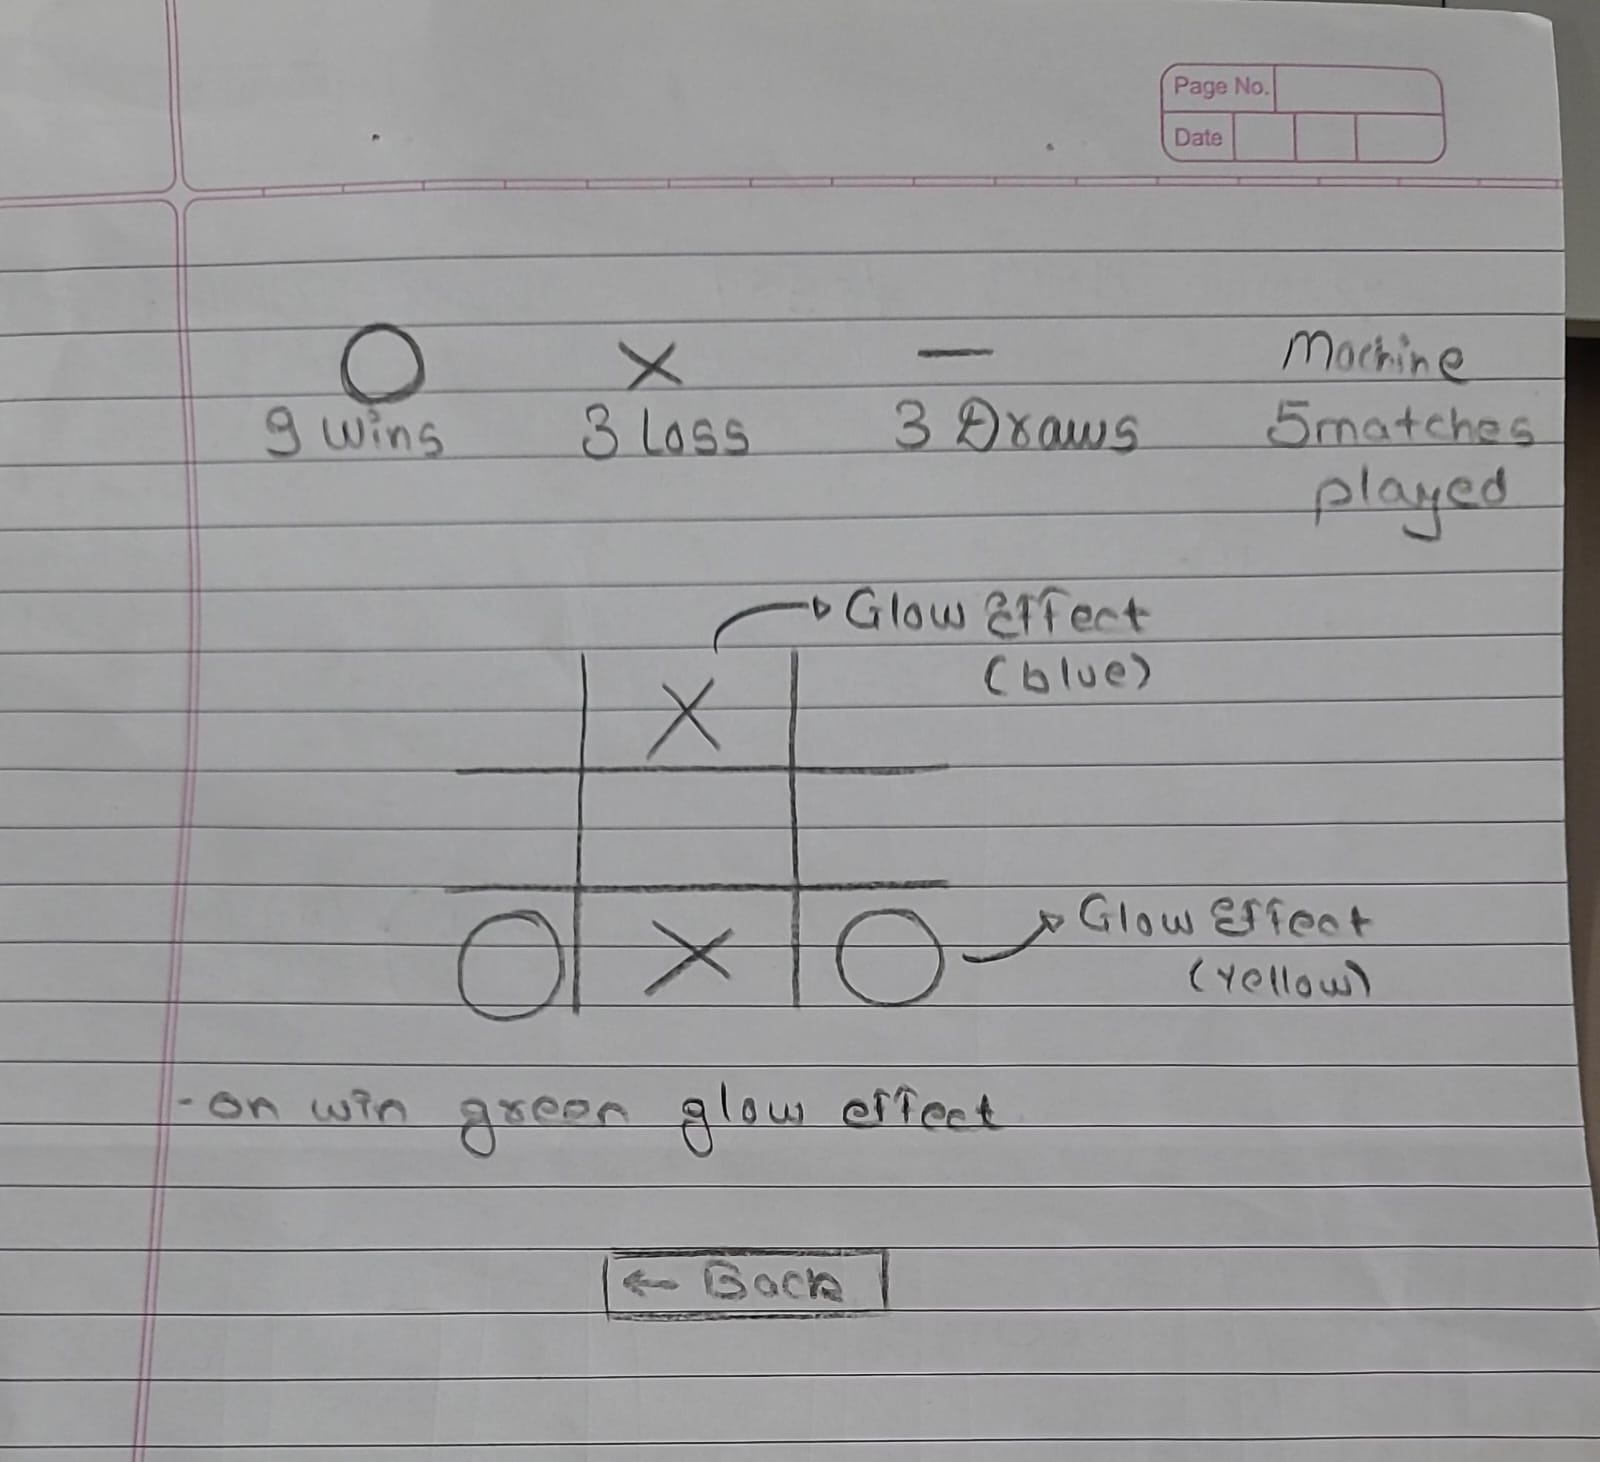 Page No.
Date
O X — Machine
9 wins 3 Loss 3 Draws 5matches
played
Glow Effect
(blue)
X
O X O Glow Effect
(Yellow)
- on win green glow effect
← Back